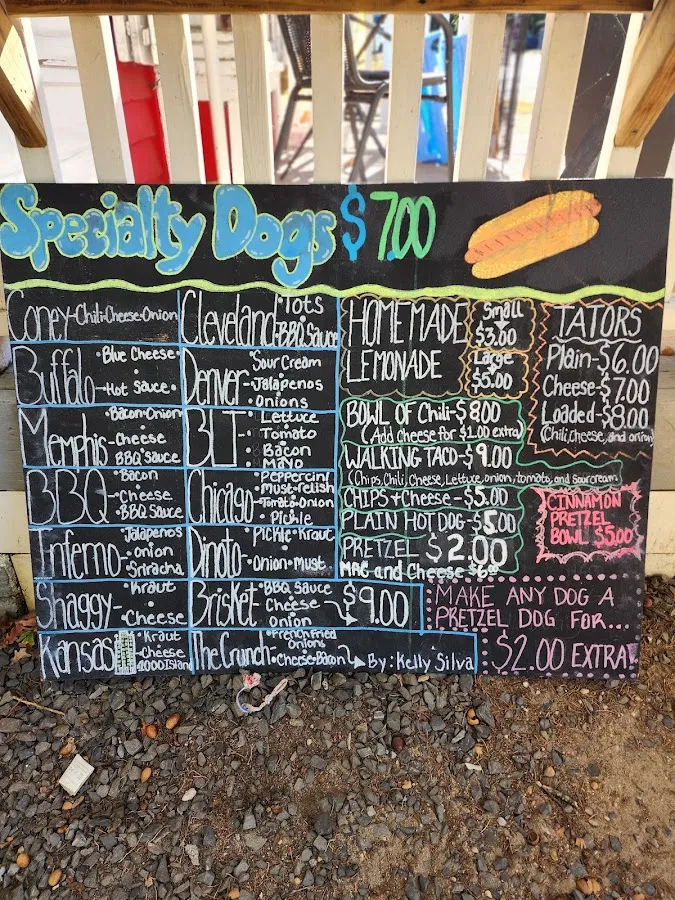 Specialty Dogs $7.00
Coney-Chili-Cheese-Onion
Buffalo •Blue Cheese•
-Hot Sauce•
Memphis •Bacon-Onion
-Cheese
BBQ Sauce
BBQ •Bacon
-Cheese
•BBQ Sauce
Inferno •Jalapenos
-onion
Sriracha
Shaggy- •Kraut
•Cheese
Kansas •Kraut
•Cheese
1000 Island
Cleveland •Tots
BBQ Sauce
Denver Sour Cream
-Jalapenos
•Onions
BLT- Lettuce
•Tomato
•Bacon
Mayo
Chicago Peppercini
Must-relish
-Tomato-Onion
•Pickle
Dinoto- •Pickle-Kraut
•Onion•Must.
Brisket •BBQ Sauce $9.00
Cheese
onion
The Crunch- •French Fried
Onions
•Cheese•Bacon By: Kelly Silva
HOMEMADE
LEMONADE
Small
$3.00
Large
$5.00
TATORS
Plain-$6.00
Cheese-$7.00
Loaded-$8.00
(Chili, cheese, and onion)
BOWL OF Chili-$8.00
(Add cheese for $1.00 extra)
WALKING TACO-$9.00
(Chips, Chili, Cheese, Lettuce, onion, tomato, and sourcream
CHIPS + Cheese-$5.00
PLAIN HOT DOG-$5.00
PRETZEL $2.00
MAC and Cheese $6.00
CINNAMON
PRETZEL
BOWL $5.00
MAKE ANY DOG A
PRETZEL DOG FOR...
$2.00 EXTRA!